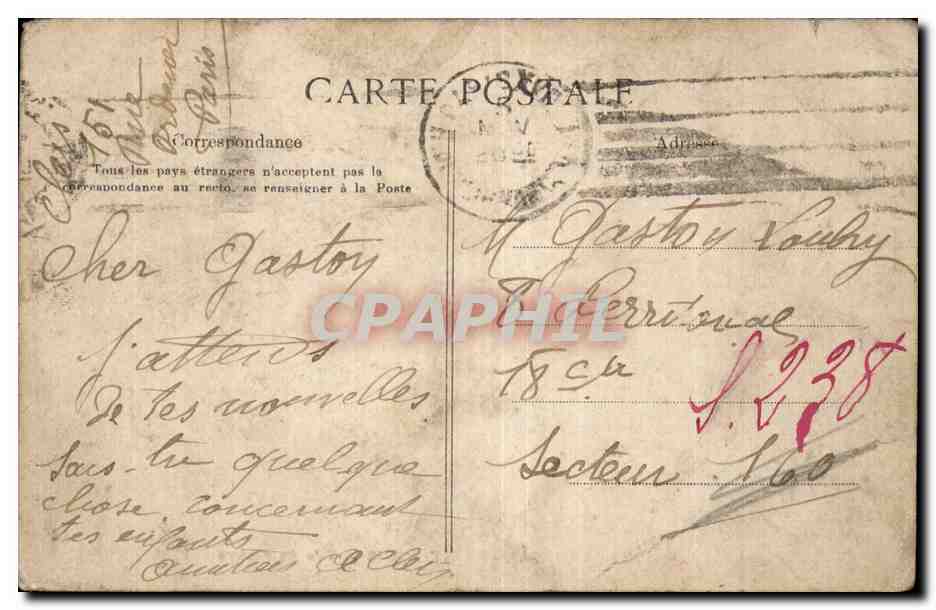 CARTE POSTALE
Correspondance
Tous les pays étrangers n'acceptent pas la
correspondance au recto, se renseigner à la Poste
Adresse
151
Rue
Paris
Cher Gaston
J'attends
de tes nouvelles
sais-tu quelque
chose concernant
tes enfants
M Gaston
Territorial
18 Cie
S. 238
Secteur 160
CPAPHIL